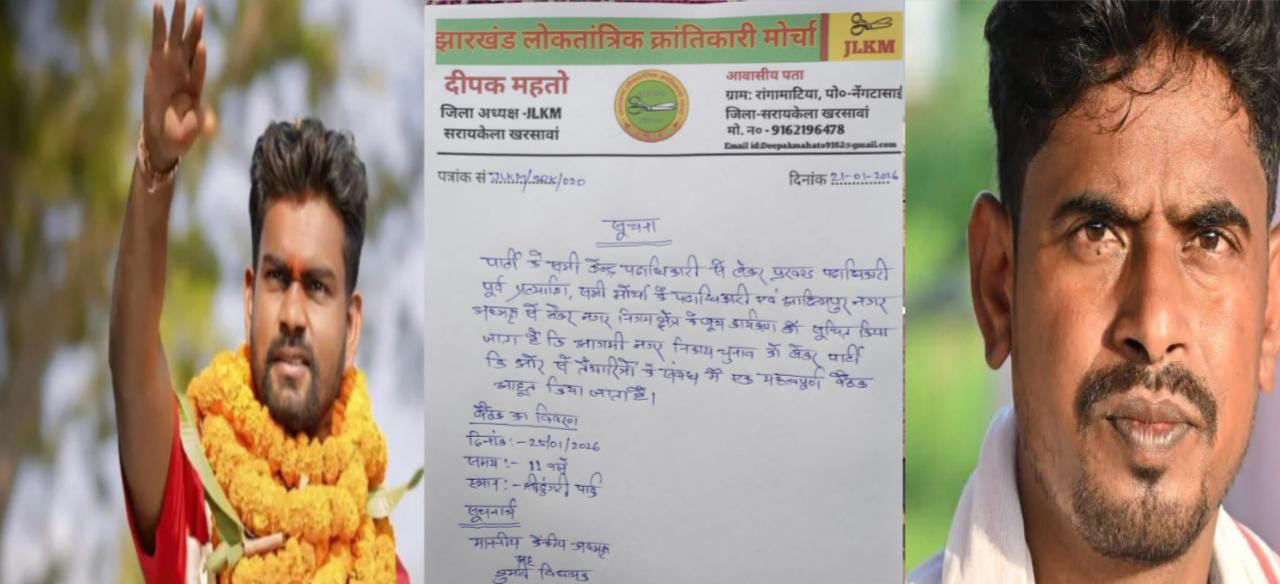 झारखंड लोकतांत्रिक क्रांतिकारी मोर्चा
JLKM
दीपक महतो
जिला अध्यक्ष -JLKM
सरायकेला खरसावां
आवासीय पता
ग्राम: रांगामाटिया, पो०-नेंगटासाई
जिला-सरायकेला खरसावां
मो. न० - 9162196478
Email id:Deepakmahato9162@gmail.com
पत्रांक सं JLKM/SRK/020
दिनांक 21-01-2026
सूचना
पार्टी के सभी केन्द्र पदाधिकारी से लेकर प्रखण्ड पदाधिकारी
पूर्व प्रत्याशि, सभी मोर्चा के पदाधिकारी एवं आदित्यपुर नगर
अध्यक्ष से लेकर नगर निगम क्षेत्र के को सूचित किया
जाता है कि आगामी नगर निकाय चुनाव को लेकर पार्टी
कि ओर से तैयारियों के संबंध में एक महत्वपूर्ण बैठक
आहूत किया जाता है।
बैठक का विवरण
दिनांक :- 25/01/2026
समय :- 11 बजे
स्थान :-
सूचनार्थ
माननीय केंद्रीय अध्यक्ष
सह
डुमरी विधायक